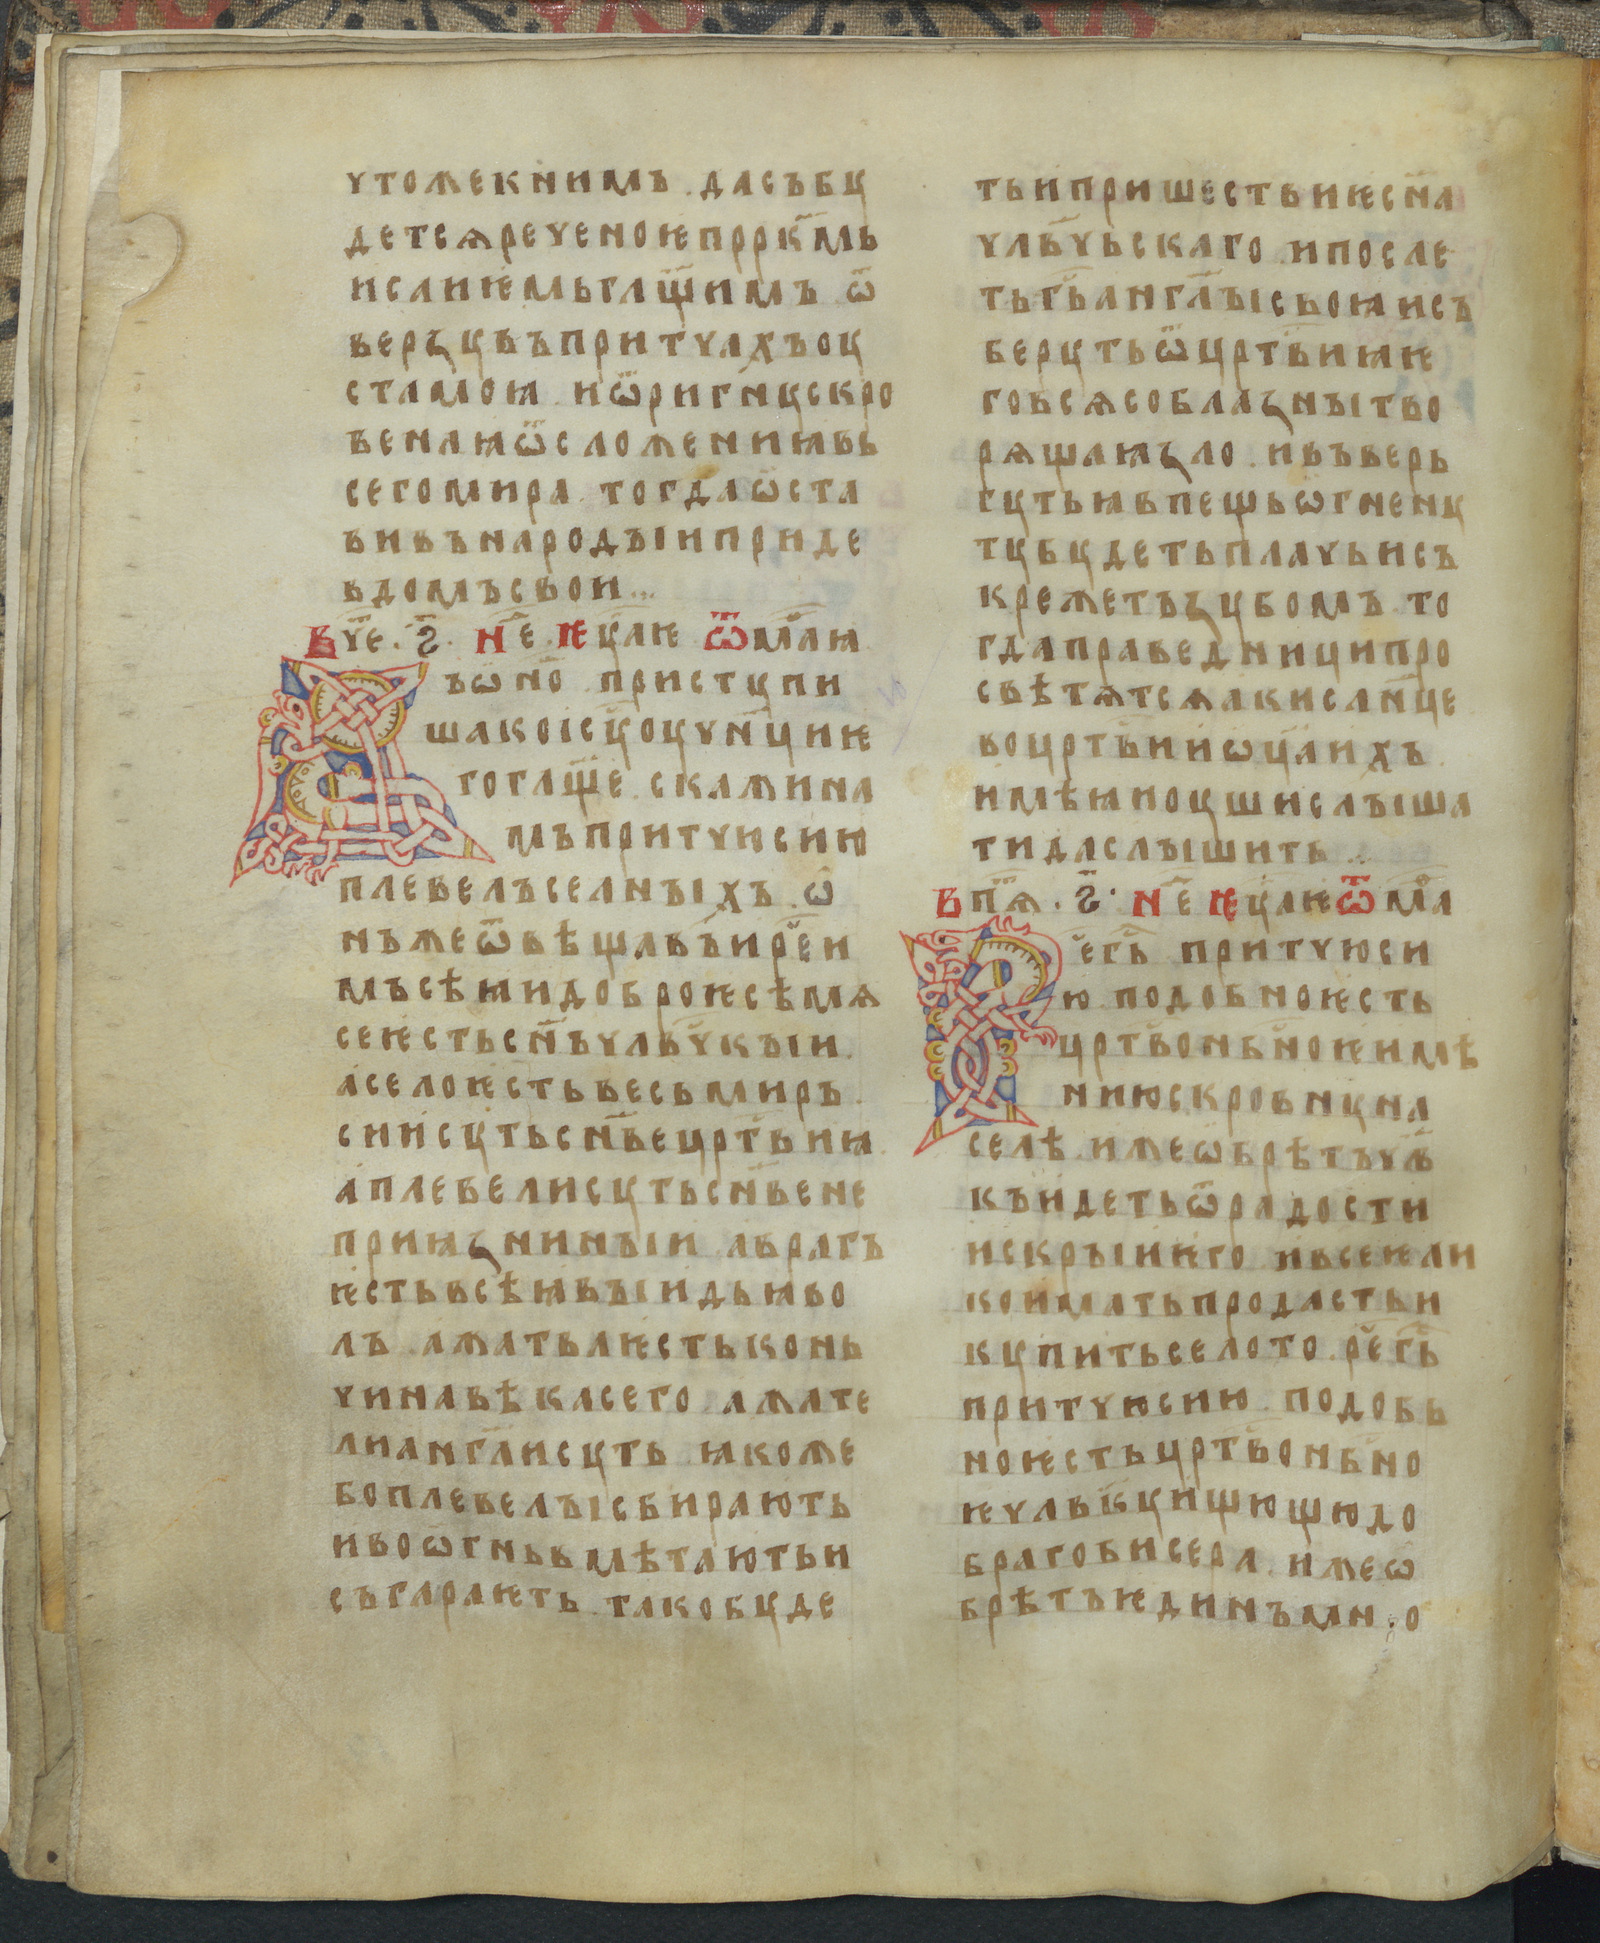 чтожекнимъ. дасъбꙋ
детсѧреченоѥпрркⷨмь
исаиѥмьглщ҃имъ ѿ
верꙁꙋвъпритчахъоу
стамоꙗ. иѿригнꙋскро
венаꙗѿсложениꙗвь
сегомира. тогдаѡста
вивънародꙑиприде
вдомъсвои...
вче҃.ѕ҃. не҃ ѥꙋаⷢ҇ѥ ѿмаⷴ҇ꙗ
ъѡно пристꙋпи
шакоіс҃ꙋоучнц҃иѥ
гоглщ҃е. скажина
мъпритчюсию
плевелъселнꙑхъ. ѡ
нъжеѿвѣщавъирече҃и
мъсѣꙗидоброѥсѣмѧ
сеѥстьсн҃ъчл҃вчⷭ҇кꙑи.
аселоѥстьвесьмиръ.
сиисꙋтьсн҃вецр҃твиꙗ
аплевелисꙋтьсн҃вене
приꙗꙁнинꙑи. аврагъ
ѥстьвсѣꙗвꙑидьꙗво
лъ. ажатваѥстьконь
чинавѣкасего. ажате
лианг҃лисꙋть. ꙗкоже
боплевелꙑсбирають
ивоѡгньвмѣтаютьи
съгараѥть. такобꙋде
тьипришествиѥсн҃а
чл҃вчьскаго. ипосле
тьгь҃англ҃ꙑсвоꙗисъ
берꙋтьѿцр҃твиꙗѥ
говсѧсоблаꙁнꙑтво
рѧщаꙗꙁло. ивъверь
гꙋтьꙗвпещьѡгненꙋ
тꙋбꙋдетьплачьисъ
крежетъꙁꙋбомъ. то
гдаправедниципро
свѣтѧтсѧакисл҃нце
воцр҃твииѡц҃аихъ.
имѣꙗиоушислꙑша
тидаслꙑшить...
впѧ҃.ѕ҃. не҃ ѥꙋаⷢ҇ѥѿмаⷴ҇
ечегь҃ притчюси
ю. подобноѥсть
цр҃твонб҃ноѥимѣ
ниюскровнꙋна
селѣ. ижеѡбрѣтъчл҃в
къидетьѿрадости
искрꙑиѥго. ивсеѥли
коиматьпродастьи
кꙋпитьселото. рече҃гь҃
притчюсию. подобь
ноѥстьцр҃твонб҃но
ѥчл҃вкꙋищющюдо
брагобисера. ижеѡ
брѣтъѥдинъмн.о